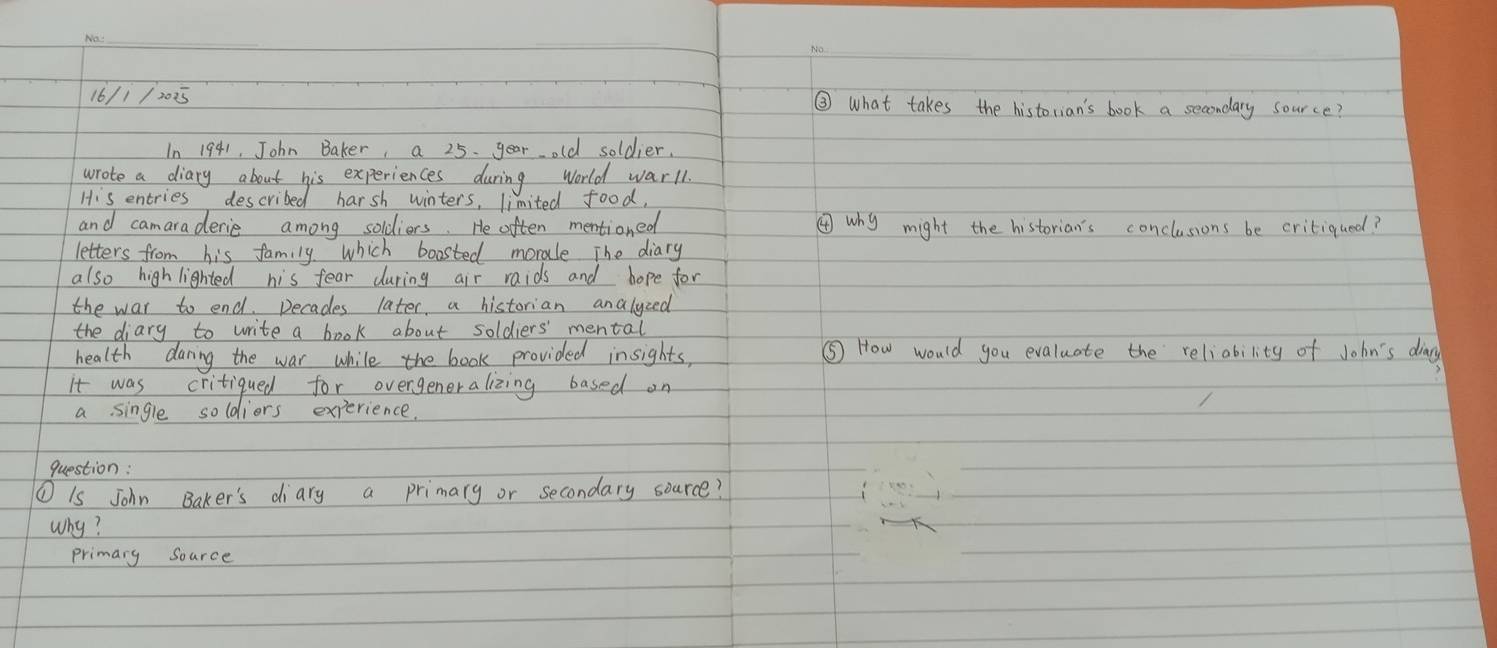 No.:
16/1/2025
In 1941, John Baker, a 25-year-old soldier,
wrote a diary about his experiences during World war II.
His entries described harsh winters, limited food,
and camaraderie among soldiers. He often mentioned
letters from his family. Which boosted morale The diary
also highlighted his fear during air raids and hope for
the war to end. Decades later, a historian analyzed
the diary to write a book about soldiers' mental
health daring the war while the book provided insights,
it was critiqued for overgeneralizing based on
a single soldiers experience.
question:
① Is John Baker's diary a primary or secondary source?
Why?
Primary Source
No.
③ What takes the historian's book a secondary source?
④ Why might the historian's conclusions be critiqued?
⑤ How would you evaluate the reliability of John's diary
?